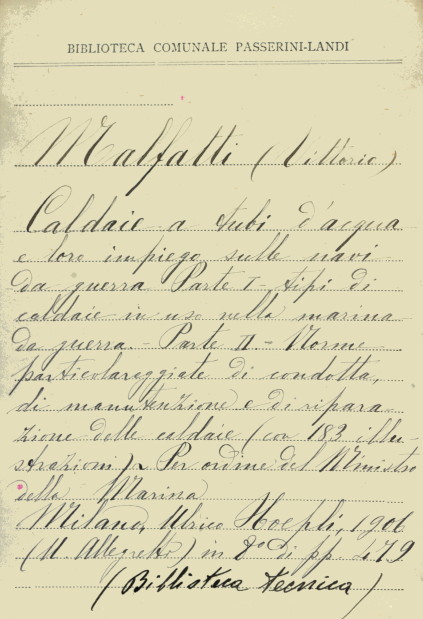 BIBLIOTECA COMUNALE PASSERINI-LANDI
Malfatti (Vittorio)
Caldaie a tubi d'acqua
e loro impiego sulle navi
da guerra Parte I - tipi di
caldaie in uso nella marina
da guerra. - Parte II. - Norme
particolareggiate di condotta,
di manutenzione e di ripara-
zione delle caldaie (con 183 illu-
strazioni) - Per ordine del Ministro
della Marina
Milano, Ulrico Hoepli, 1901
(U. Allegretti) in 8° di pp. 479
(Biblioteca tecnica)